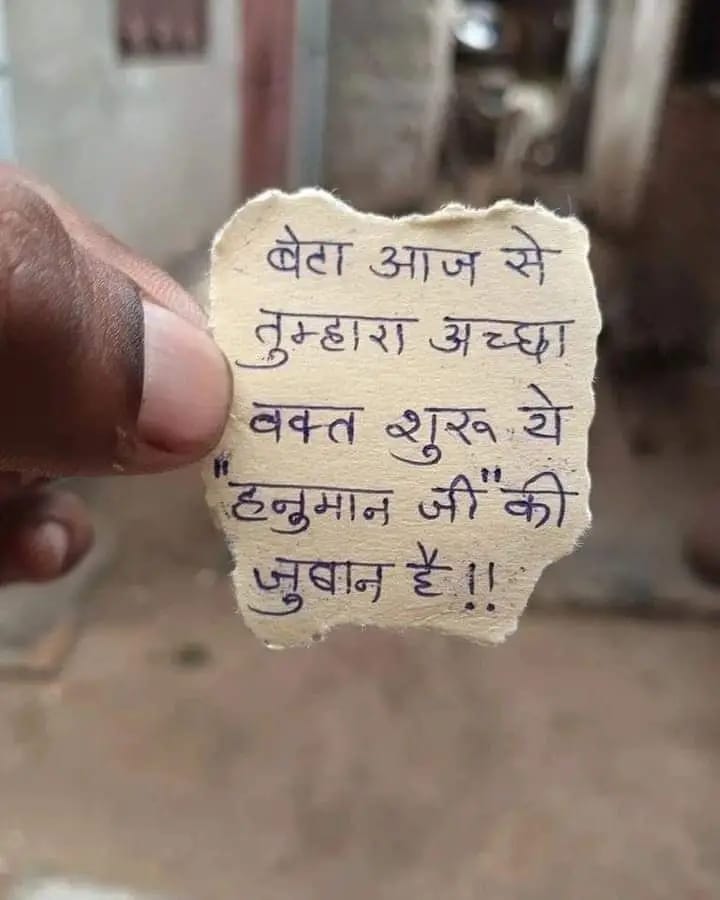 बेटा आज से
तुम्हारा अच्छा
वक्त शुरू ये
"हनुमान जी" की
जुबान है !!